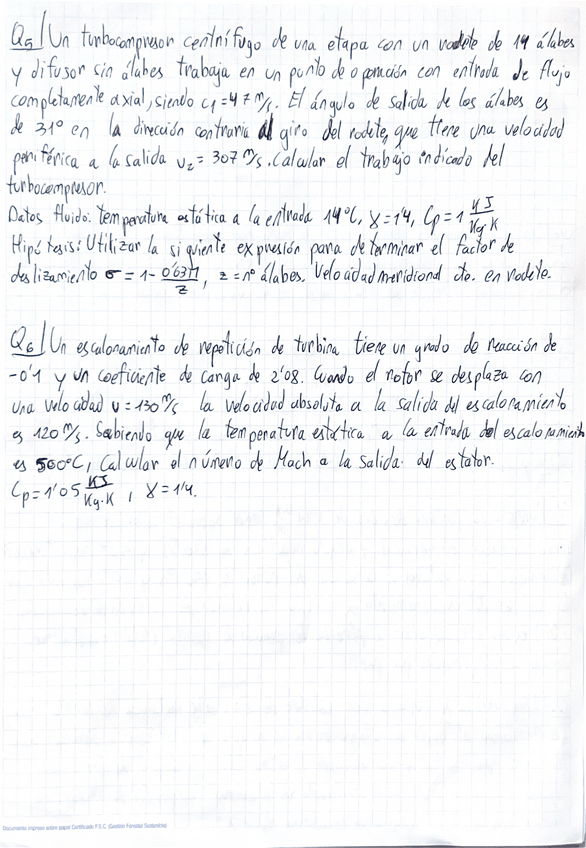 Q5/ Un turbocompresor centrífugo de una etapa con un rodete de 14 álabes
y difusor sin álabes trabaja en un punto de operación con entrada de flujo
completamente axial, siendo c1=47 m/s. El ángulo de salida de los álabes es
de 31º en la dirección contraria al giro del rodete, que tiene una velocidad
periférica a la salida u2= 307 m/s. Calcular el trabajo indicado del
turbocompresor.
Datos fluido: temperatura estática a la entrada 14ºC, γ=1'4, Cp=1 KJ/Kg·K
Hipótesis: Utilizar la siguiente expresión para determinar el factor de
deslizamiento σ = 1- 0'63π/z, z=nº álabes. Velocidad meridional cte. en rodete.
Q6/ Un escalonamiento de repetición de turbina tiene un grado de reacción de
-0'1 y un coeficiente de carga de 2'08. Cuando el rotor se desplaza con
una velocidad u=130 m/s la velocidad absoluta a la salida del escalonamiento
es 120 m/s. Sabiendo que la temperatura estática a la entrada del escalonamiento
es 560ºC, Calcular el número de Mach a la salida del estator.
Cp=1'05 KJ/Kg·K, γ=1'4.
Documento impreso sobre papel Certificado F.S.C. (Gestión Forestal Sostenible)